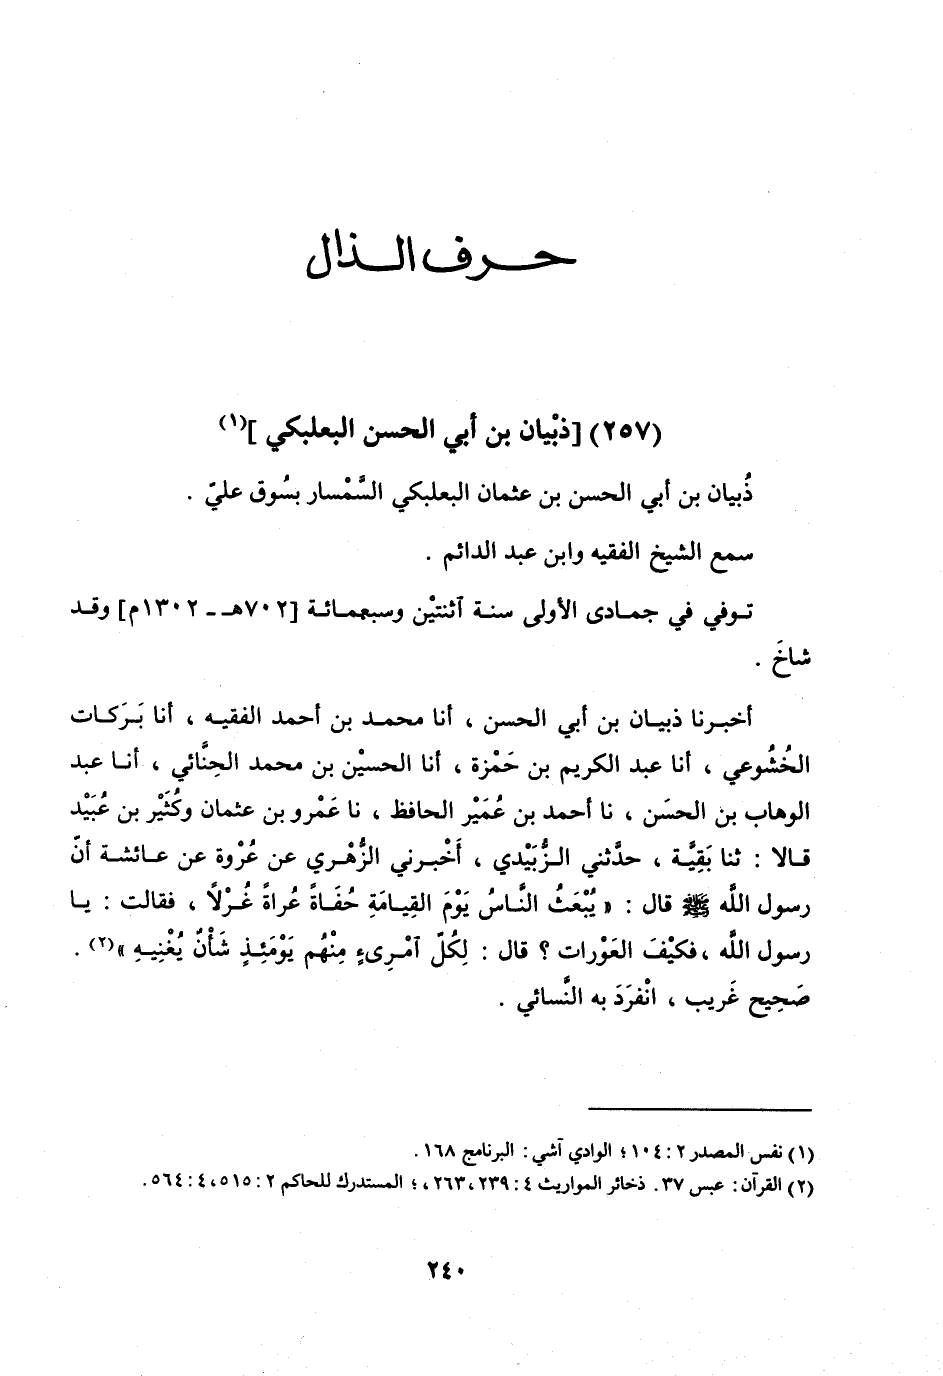 حرف الذال
(٢٥٧) [ذبْيان بن أبي الحسن البعلبكي](١)
ذُبيان بن أبي الحسن بن عثمان البعلبكي السَّمْسار بسُوق عليّ .
سمع الشيخ الفقيه وابن عبد الدائم .
توفي في جمادى الأولى سنة آثنتيْن وسبعمائة [٧٠٢هـ ـ ١٣٠٢م] وقد
شاخَ .
أخبرنا ذبيان بن أبي الحسن ، أنا محمد بن أحمد الفقيه ، أنا بَرَكات
الخُشُوعي ، أنا عبد الكريم بن حَمْزة ، أنا الحسيْن بن محمد الحِنَّائي ، أنا عبد
الوهاب بن الحسَن ، نا أحمد بن عُمَيْر الحافظ ، نا عَمْرو بن عثمان وكُثَيْر بن عُبَيْد
قالا : ثنا بَقِيَّة ، حدَّثني الزُّبَيْدي ، أَخْبرني الزُّهْري عن عُرْوة عن عائشة أنّ
رسول اللَّه ﷺ قال : « يُبْعَثُ النَّاسُ يَوْمَ القِيامَةِ حُفَاةً عُراةً غُرْلاً ، فقالت : يا
رسول اللَّه ، فكيْفَ العَوْرات ؟ قال : لِكُلّ آمْرِىءٍ مِنْهُم يَوْمَئِذٍ شَأْنٌ يُغْنِيهِ »(٢) .
صَحِيح غَريب ، انْفرَدَ به النَّسائي .
(١) نفس المصدر ٢ : ١٠٤؛ الوادي آشي : البرنامج ١٦٨ .
(٢) القرآن : عبس ٣٧. ذخائر المواريث ٤ : ٢٣٩، ٢٦٣، ؛ المستدرك للحاكم ٢ : ٥١٥، ٤ : ٥٦٤.
٢٤٠